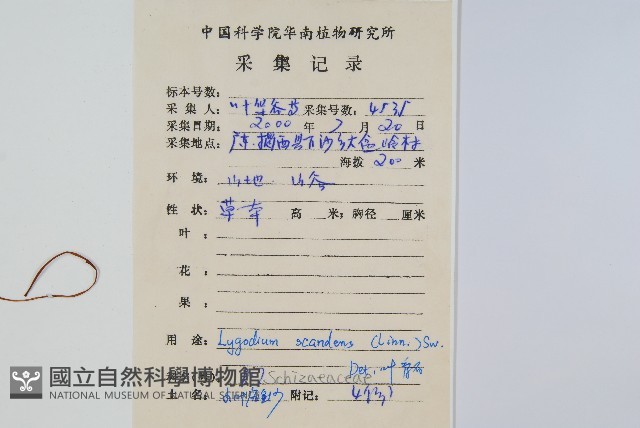 中国科学院华南植物研究所
采集记录
标本号数：
采集人： 叶华谷等 采集号数： 4535
采集日期： 2000 年 7 月 20 日
采集地点： 广东·揭西县
海拨 200 米
环境： 山地 山谷
性状： 草本 高 米；胸径 厘米
叶：
花：
果：
用途： Lygodium scandens (Linn.) Sw.
Schizaeaceae Det. 叶
土名： 附记：
國立自然科學博物館
NATIONAL MUSEUM OF NATURAL SCIENCE